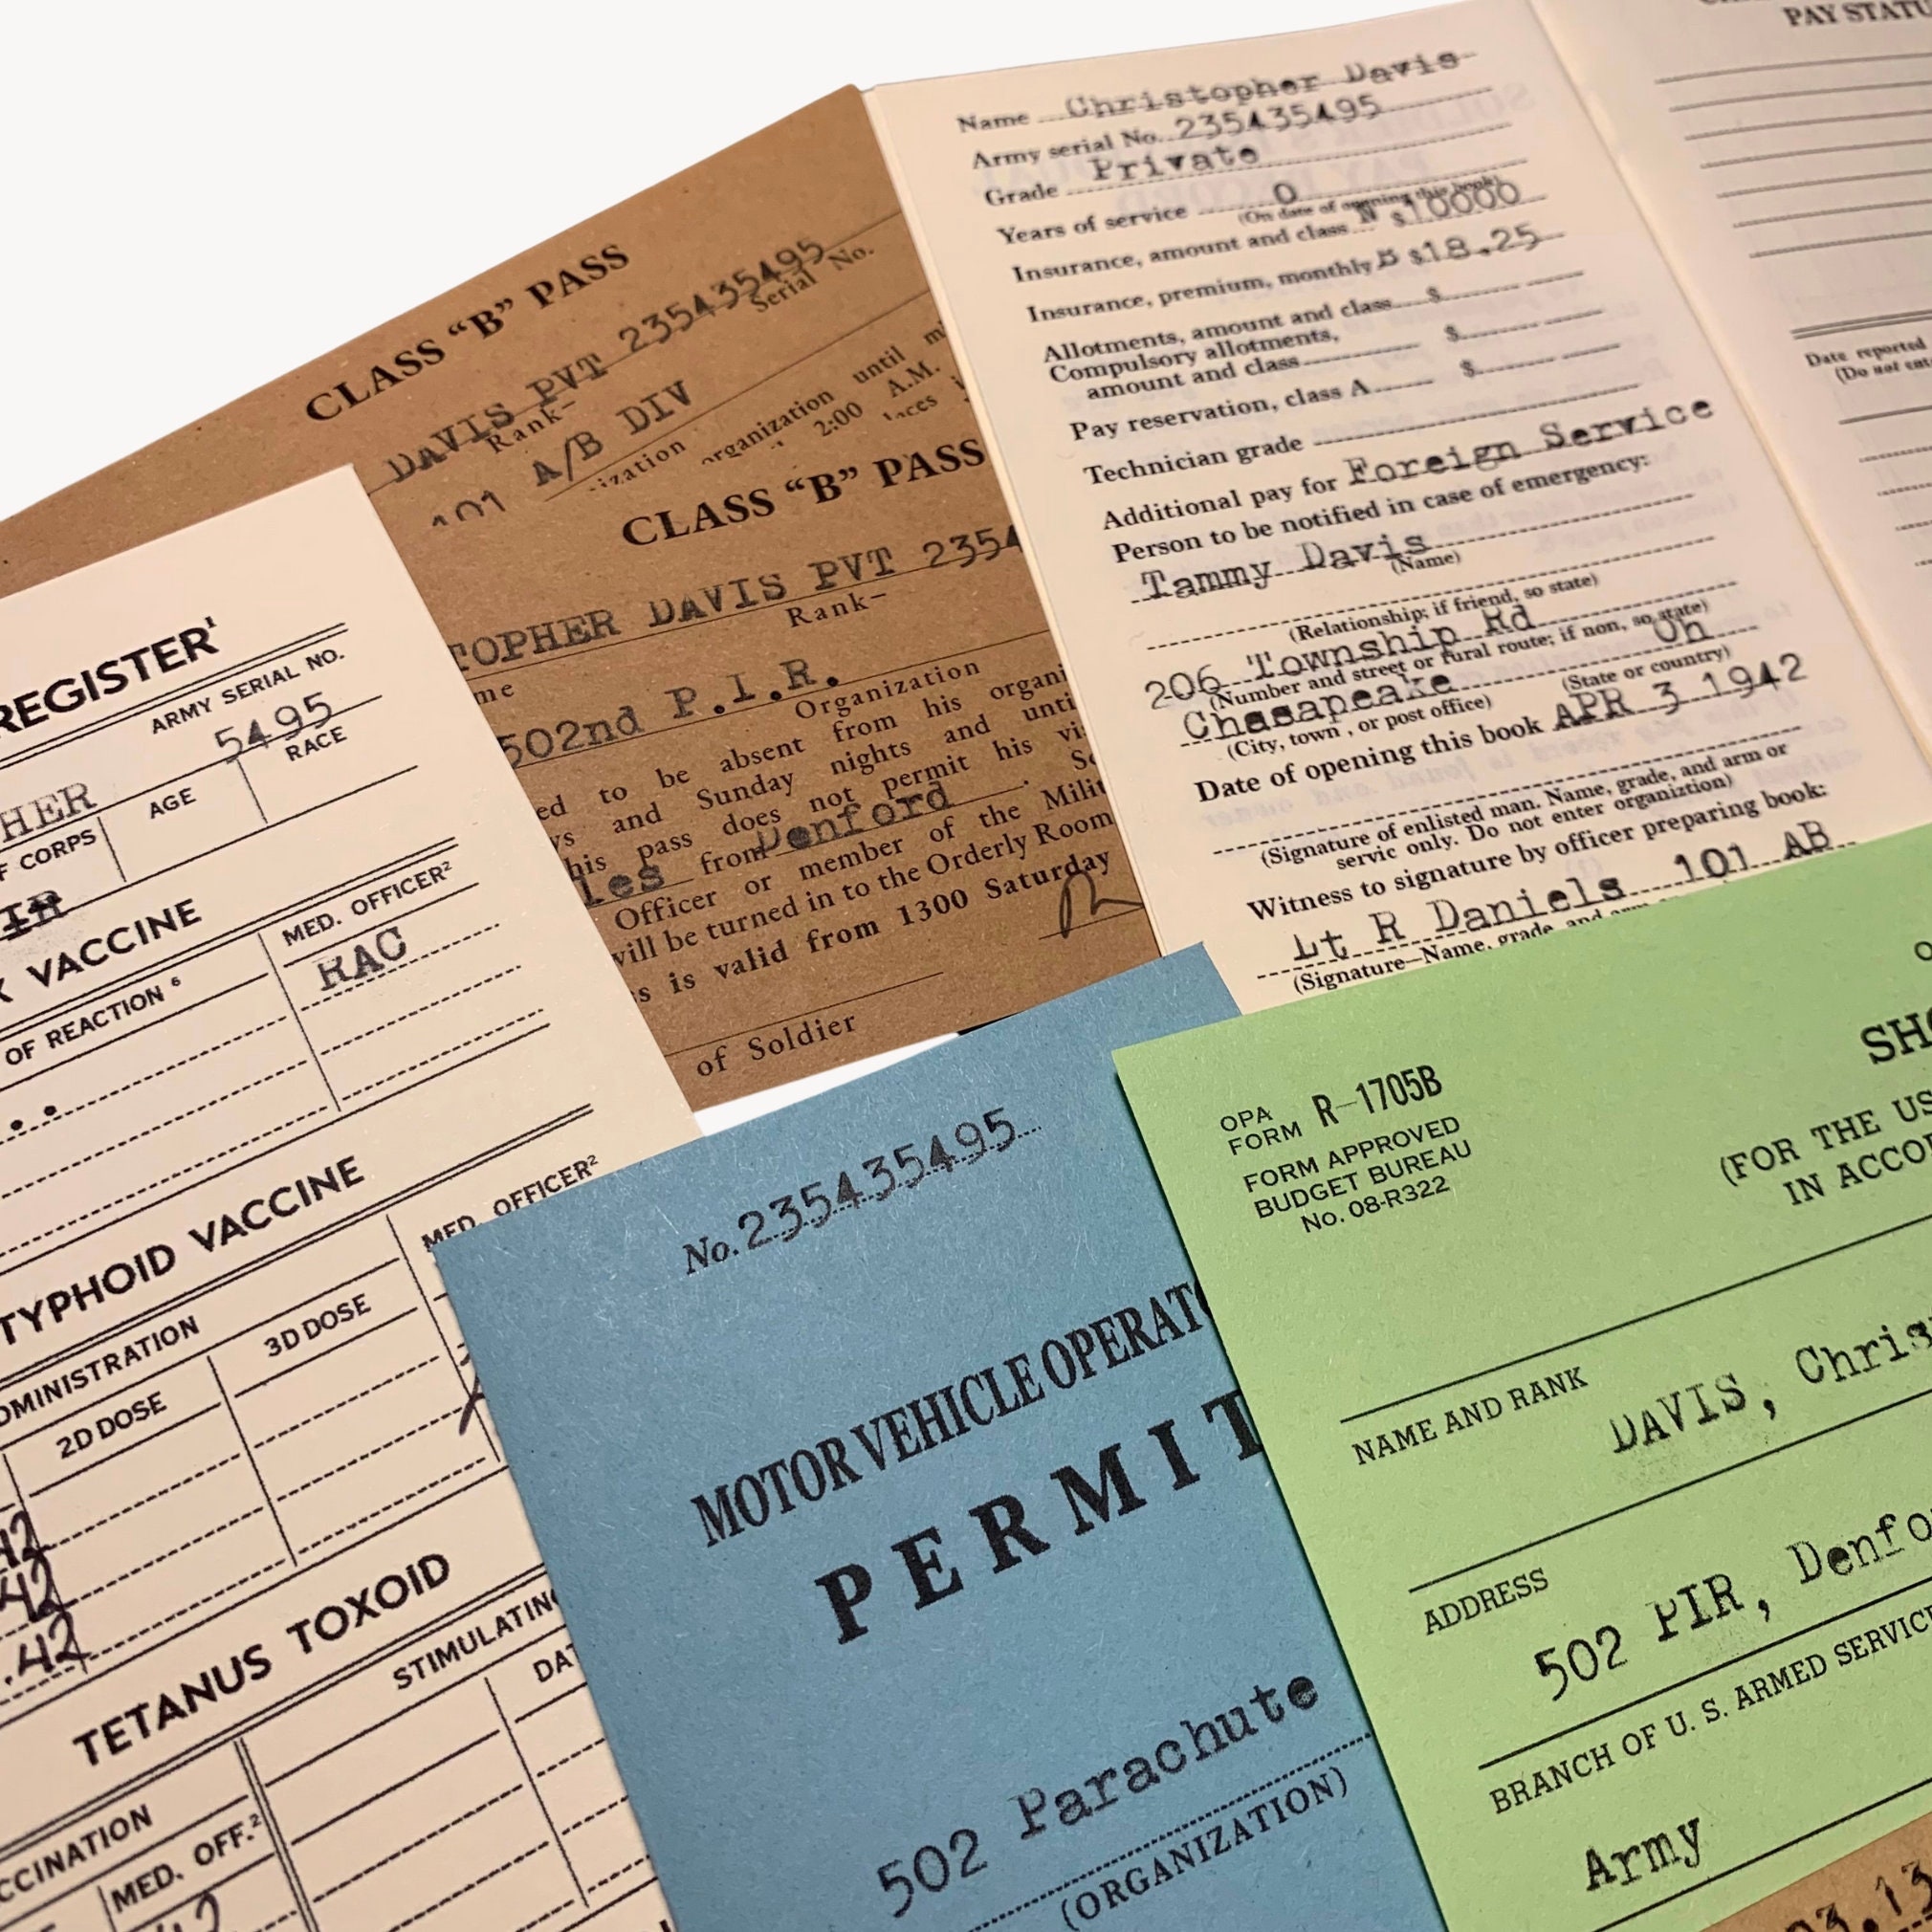 PAY STATU
Name Christopher Davis
Army serial No. 235435495
Grade Private
Years of service 0
(On date of opening this book)
Insurance, amount and class N $10000
Insurance, premium, monthly $18.25
Allotments, amount and class $
Compulsory allotments,
amount and class $
Pay reservation, class A $
Technician grade
Additional pay for Foreign Service
Person to be notified in case of emergency:
Tammy Davis
(Name)
(Relationship; if friend, so state)
206 Township Rd
(Number and street or rural route; if non, so state)
Chesapeake Oh
(City, town , or post office) (State or country)
Date of opening this book APR 3 1942
(Signature of enlisted man. Name, grade, and arm or
servic only. Do not enter organiztion)
Witness to signature by officer preparing book:
Lt R Daniels 101 AB
(Signature—Name, grade, and arm
Date reported
(Do not ent
CLASS “B” PASS
DAVIS PVT 235435495
Rank- Serial No.
101 A/B DIV
ization
organization until mi
2:00 A.M.
laces
CLASS “B” PASS
TOPHER DAVIS PVT 2354
me Rank-
502nd P.I.R.
Organization
ed to be absent from his organi
ys and Sunday nights and unti
his pass does not permit his vi
les from Denford . So
Officer or member of the Milit
will be turned in to the Orderly Room
ss is valid from 1300 Saturday
of Soldier
REGISTER¹
ARMY SERIAL NO.
5495
HER
F CORPS AGE RACE
X VACCINE
OF REACTION ⁶ MED. OFFICER²
RAC
TYPHOID VACCINE
DMINISTRATION MED. OFFICER²
2D DOSE 3D DOSE
42
42
.42
TETANUS TOXOID
STIMULATING
DAT
CCINATION
MED. OFF.²
No. 235435495
MOTOR VEHICLE OPERATO
PERMIT
502 Parachute
(ORGANIZATION)
OPA
FORM R-1705B
FORM APPROVED
BUDGET BUREAU
No. 08-R322
SHO
(FOR THE US
IN ACCOR
DAVIS, Chris
NAME AND RANK
502 PIR, Denfo
ADDRESS
Army
BRANCH OF U. S. ARMED SERVIC